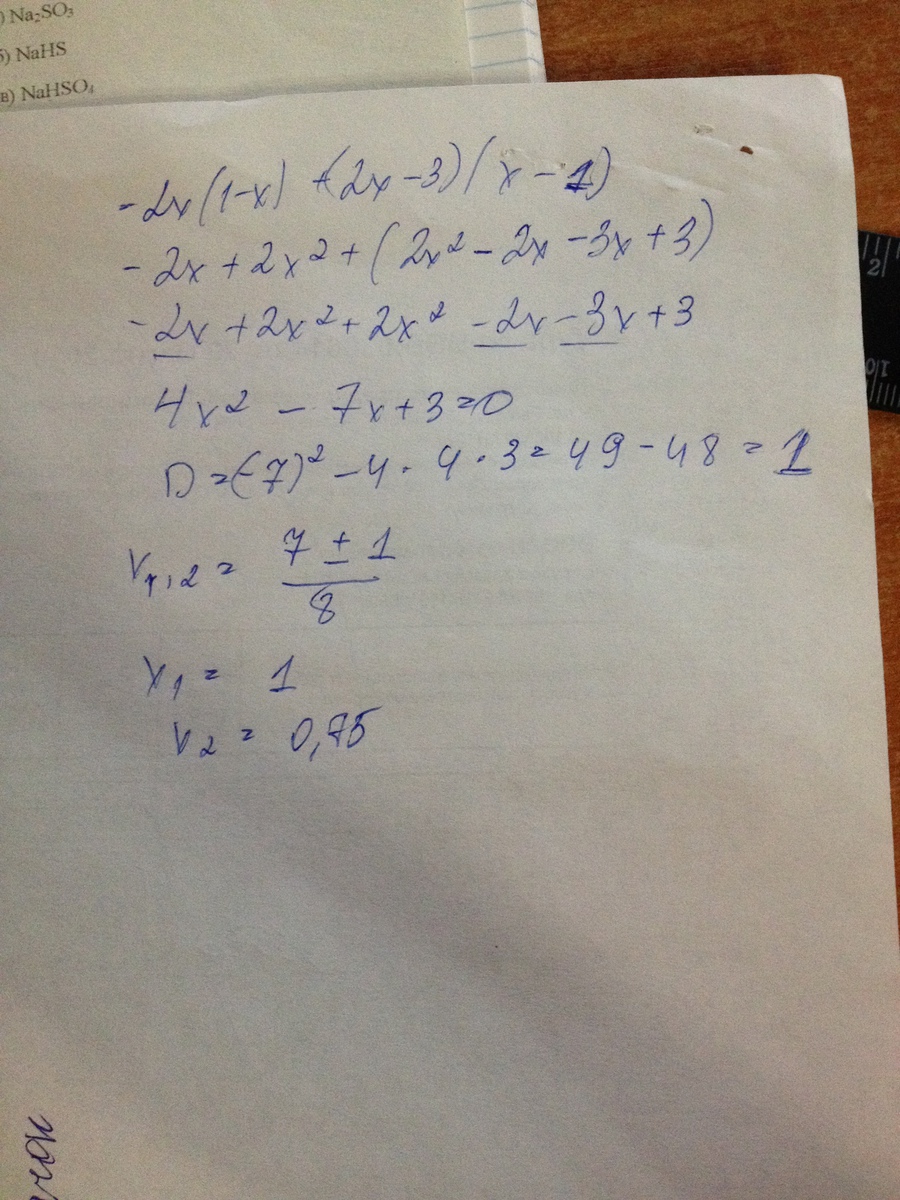 ) Na₂SO₃
б) NaHS
в) NaHSO₄
-2x(1-x) +(2x-3)(x-1)
-2x+2x²+(2x²-2x-3x+3)
-2x+2x²+2x² -2x-3x+3
4x² - 7x+3=0
D=(-7)²-4·4·3=49-48=1
x₁,₂= 7±1/8
x₁= 1
x₂= 0,75
2